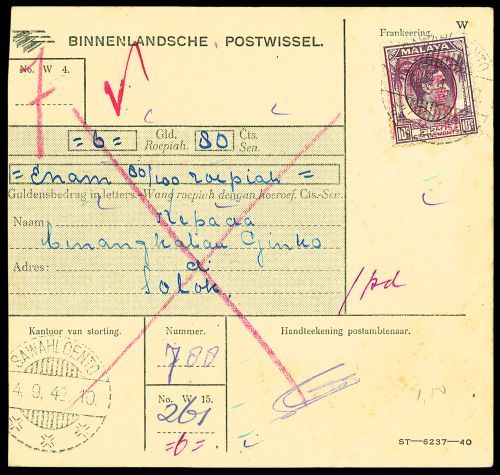 W
BINNENLANDSCHE POSTWISSEL.
Frankeering.
No. W 4.
MALAYA
= 6 = Gld. Roepiah. 80 Cts. Sen.
= Enam 80/100 roepiah =
Guldensbedrag in letters - Wang roepiah dengan hoeroef. Cts.-Sen.
Naam: Kepada
Minangkabau Ginko
Adres: di
Solok.
/pd
Kantoor van storting.
Nummer.
Handteekening postambtenaar.
SAWAHLOENTO
4. 9. 42. 10.
788
No. W 15.
261
=6=
1,50
ST—6237—40